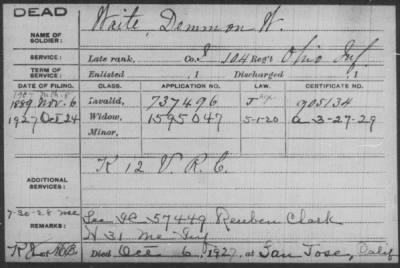 DEAD
NAME OF SOLDIER: Waite, Demmon W.
SERVICE: Late rank, Co. 104 Reg't Ohio Inf.
TERM OF SERVICE: Enlisted , 1 Discharged , 1
DATE OF FILING. CLASS. APPLICATION NO. LAW. CERTIFICATE NO.
1889 Nov. 6 Invalid, 737496 905134
1927 Oct 24 Widow, 1595047 5-1-20 a 3-27-29
Minor,
ADDITIONAL SERVICES: K 12 V. R. C.
7-20-28
REMARKS: See 57449 Reuben Clark
H 31 Me Inf
Died Oct 6, 1927, at San Jose, Calif